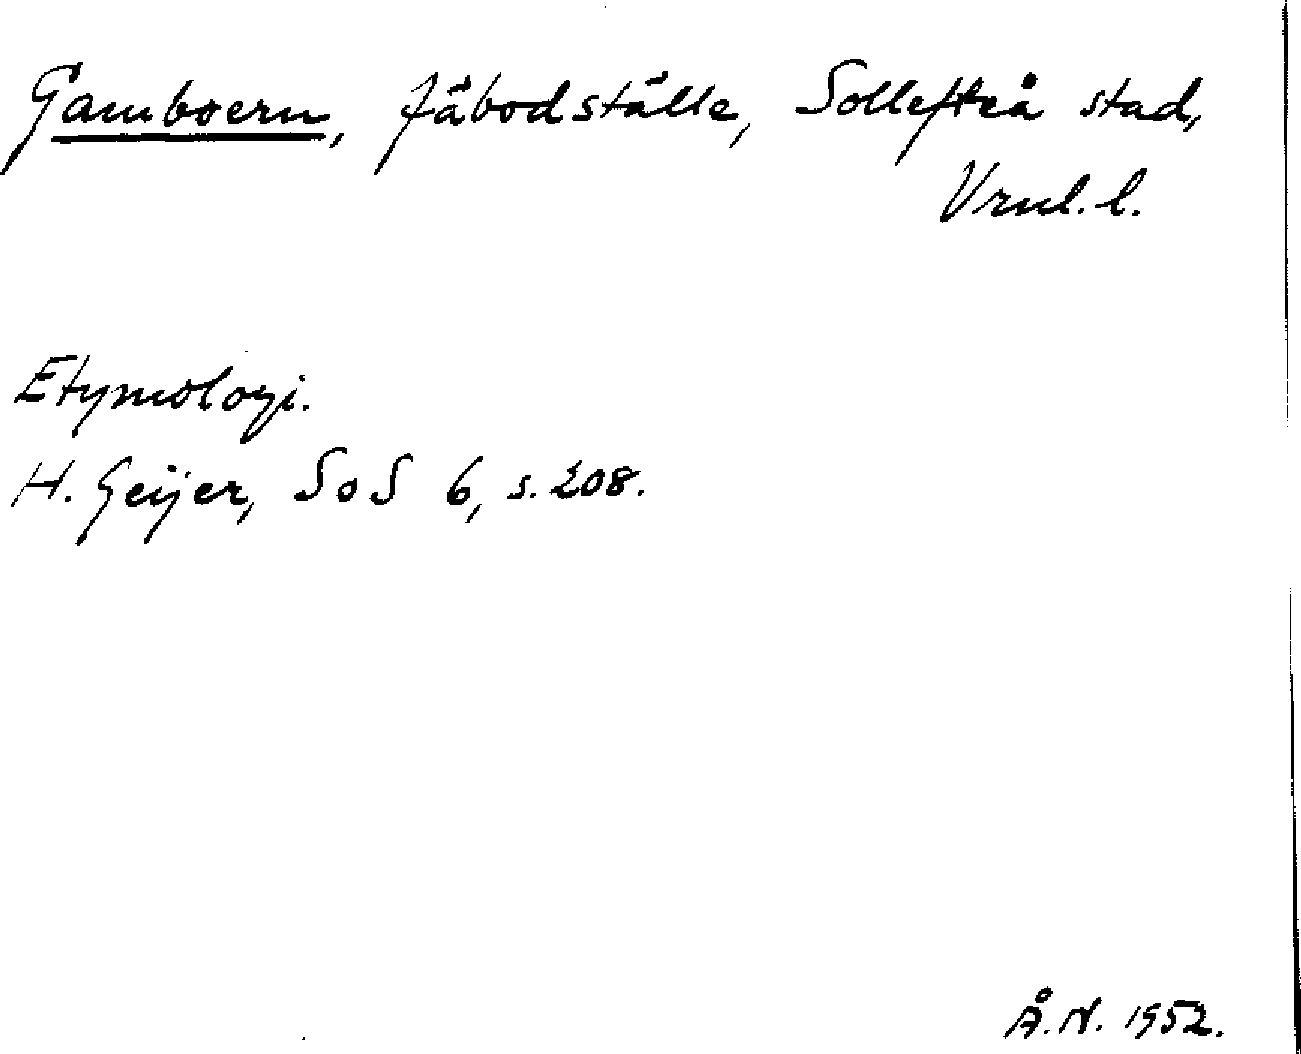 Gamboern, fäbodställe, Sollefteå stad,
Vrnl. l.
Etymologi.
H. Geijer, SoS 6, s. 208.
Å. N. 1952.